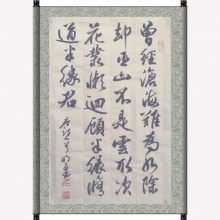 曾經滄海難為水除
却巫山不是雲取次
花叢懶迴顧半緣脩
道半緣君